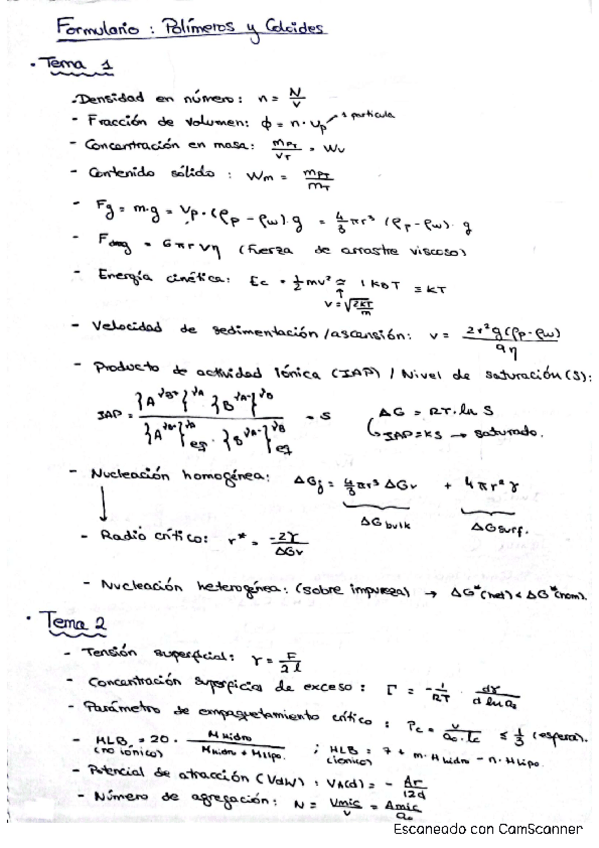 Formulario: Polímeros y Coloides
· Tema 1
- Densidad en número: n = N/V
- Fracción de volumen: ϕ = n · Vp → 1 partícula
- Concentración en masa: mPT/VT = Wv
- Contenido sólido: Wm = mPT/mT
- Fg = m·g = Vp · (ρp - ρw) · g = 4/3 πr³ (ρp - ρw) · g
- Fdrag = 6πrvη (fuerza de arrastre viscoso)
- Energía cinética: Ec = 1/2 mv² ≃ 1 KBT ≡ KT
v = √(2KT/m)
- Velocidad de sedimentación/ascensión: v = 2r²g(ρp - ρw)/9η
- Producto de actividad iónica (IAP) / Nivel de saturación (S):
IAP = {A^νB+}^νA · {B^νA-}^νB / {A^νB+}^νA eq · {B^νA-}^νB eq = S
ΔG = RT · ln S
IAP = KS → saturado.
- Nucleación homogénea: ΔGj = 4/3 πr³ ΔGv + 4πr²γ
ΔGbulk ΔGsurf.
- Radio crítico: r* = -2γ/ΔGv
- Nucleación heterogénea: (sobre impureza) → ΔG*(het) < ΔG*(hom).
· Tema 2
- Tensión superficial: γ = F/2l
- Concentración superficial de exceso: Γ = -1/RT · dγ/d ln a₀
- Parámetro de empaquetamiento crítico: Pc = v/a₀·lc ≤ 1/3 (esfera).
- HLB = 20 · MHidro/MHidro + MLipo. ; HLB = 7 + m·HHidro - n·HLipo.
(no iónico) (iónico)
- Potencial de atracción (VdW): VA(d) = - Ar/12d
- Número de agregación: N = Vmic/v = Amic/a₀
Escaneado con CamScanner